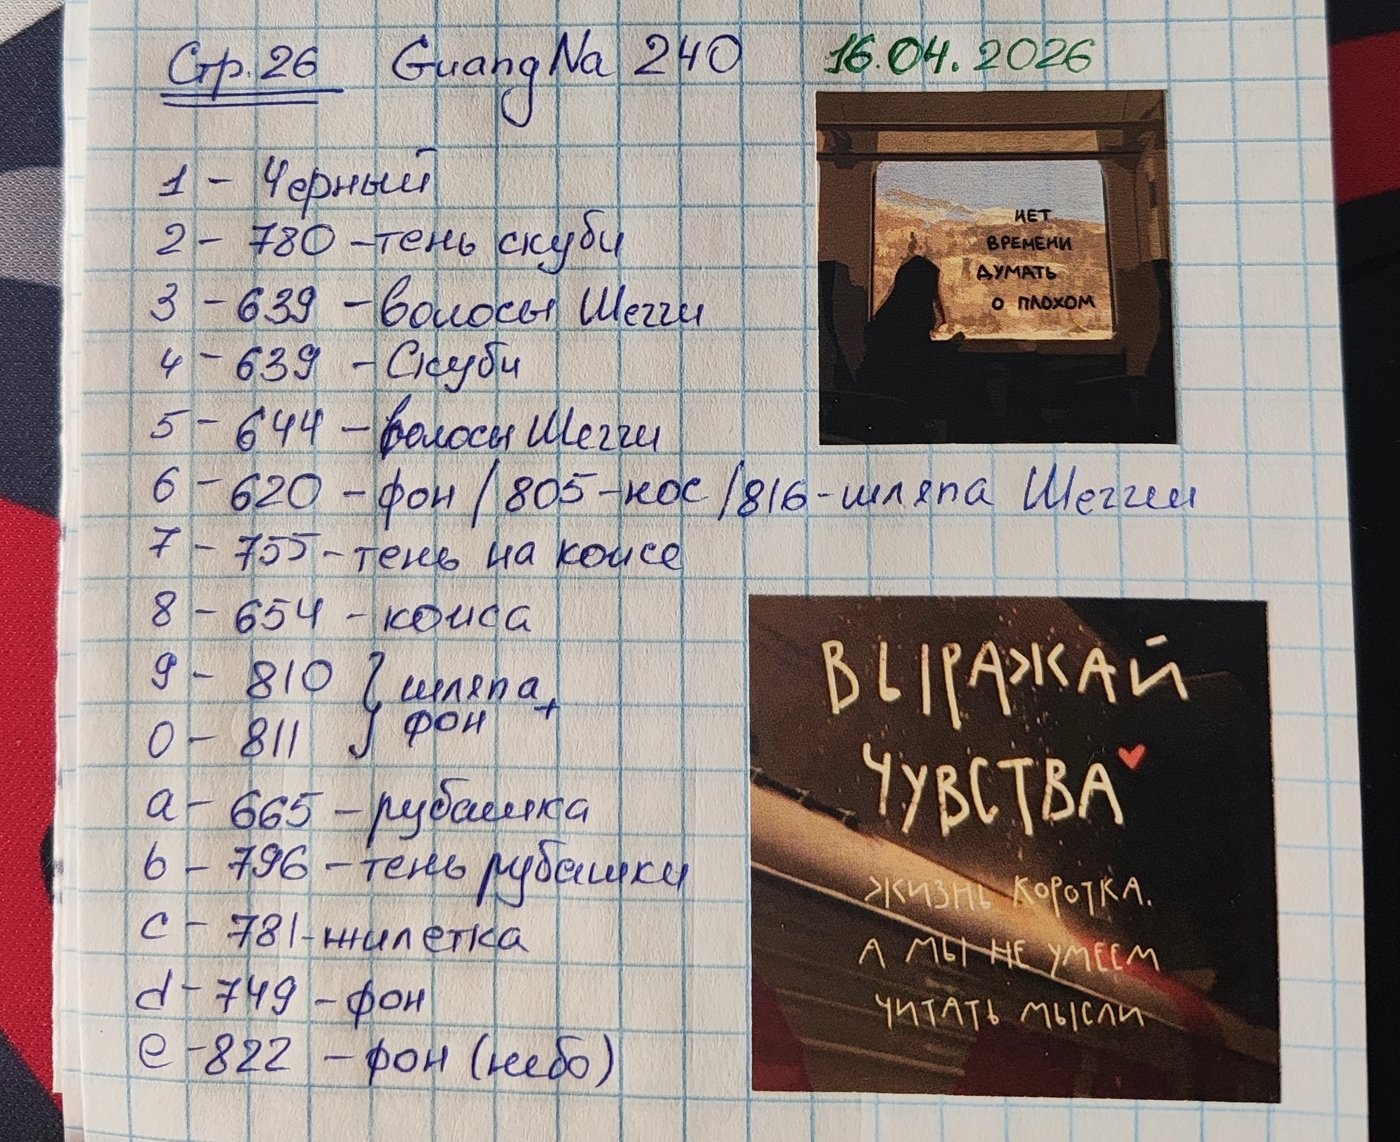 Стр.26 GuangNa 240 16.04.2026
1 - Черный
2 - 780 - тень скуби
3 - 639 - волосы Шегги
4 - 639 - Скуби
5 - 644 - волосы Шегги
6 - 620 - фон / 805 - нос / 816 - шляпа Шегги
7 - 755 - тень на коисе
8 - 654 - коиса
9 - 810 } шляпа +
0 - 811 } фон
a - 665 - рубашка
b - 796 - тень рубашки
c - 781 - жилетка
d - 749 - фон
e - 822 - фон (небо)
НЕТ
ВРЕМЕНИ
ДУМАТЬ
О ПЛОХОМ
ВЫРАЖАЙ
ЧУВСТВА
ЖИЗНЬ КОРОТКА.
А МЫ НЕ УМЕЕМ
ЧИТАТЬ МЫСЛИ